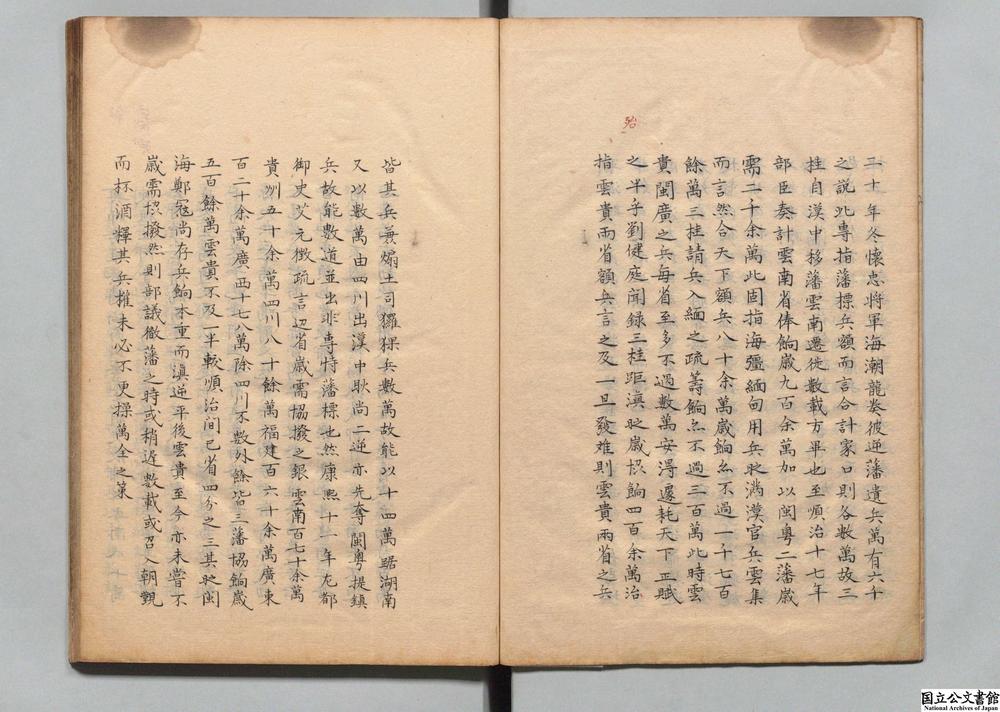 二十年冬懷忠將軍海潮龍奏彼逆藩遺兵萬有六千
之説此專指藩標兵額而言合計家口則各數萬故三
桂自漢中移藩雲南遷徙數載方畢也至順治十七年
部臣奏計雲南省俸餉歳九百余萬加以閩粤二藩歳
需二千余萬此固指海彊緬甸用兵时滿漢官兵雲集
而言然合天下額兵八十余萬歳餉亦不過一千七百
餘萬三桂請兵入緬之疏籌餉亦不過三百萬此時雲
貴閩廣之兵每省至多不過數萬安淂遽耗天下正賦
之半乎劉健庭聞録三桂距滇时歳協餉四百余萬治
指雲貴兩省額兵言之及一旦發难則雲貴兩省之兵
殆
皆其兵兼煽土司玀猓兵數萬故能以十四萬踞湖南
又以數萬由四川出漢中耿尚二逆亦先奪閩粤提鎮
兵故能數道並出非專恃藩標也然康熙十一年左都
御史艾元徴疏言辺省歳需協撥之銀雲南百七十余萬
貴州五十余萬四川八十餘萬福建百六十余萬廣東
百二十余萬廣西十七八萬除四川不數外餘皆三藩協餉歳
五百餘萬雲貴不及一半較順治间已省四分之三其时閩
海鄭寇尚存兵餉本重而滇逆平後雲貴至今亦未嘗不
歳需協撥然則部議徹藩之時或稍遲數載或召入朝覲
而杯酒釋其兵權未必不更操萬全之策
国立公文書館
National Archives of Japan